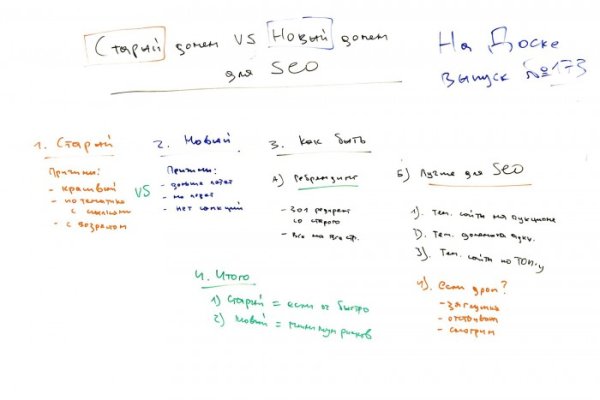 Старый домен VS Новый домен
для SEO
На Доске
выпуск №173
1. Старый
Причины:
- красивый
- по тематике
с ссылками
- с возрастом
VS
2. Новый
Причины:
- дольше
- не
- нет санкций
3. Как быть
А) Ребрендинг
- 301 редирект
со старого
- все на все стр.
Б) Лучше для SEO
1). Тем. сайты на аукционе
2). Тем. домены аукц.
3). Тем. сайты по ТОП-у
4). если дроп?
- заглушка
- отстаиваем
- смотрим
4. Итого
1) Старый = если ог быстро
2) Новый = минимум рисков